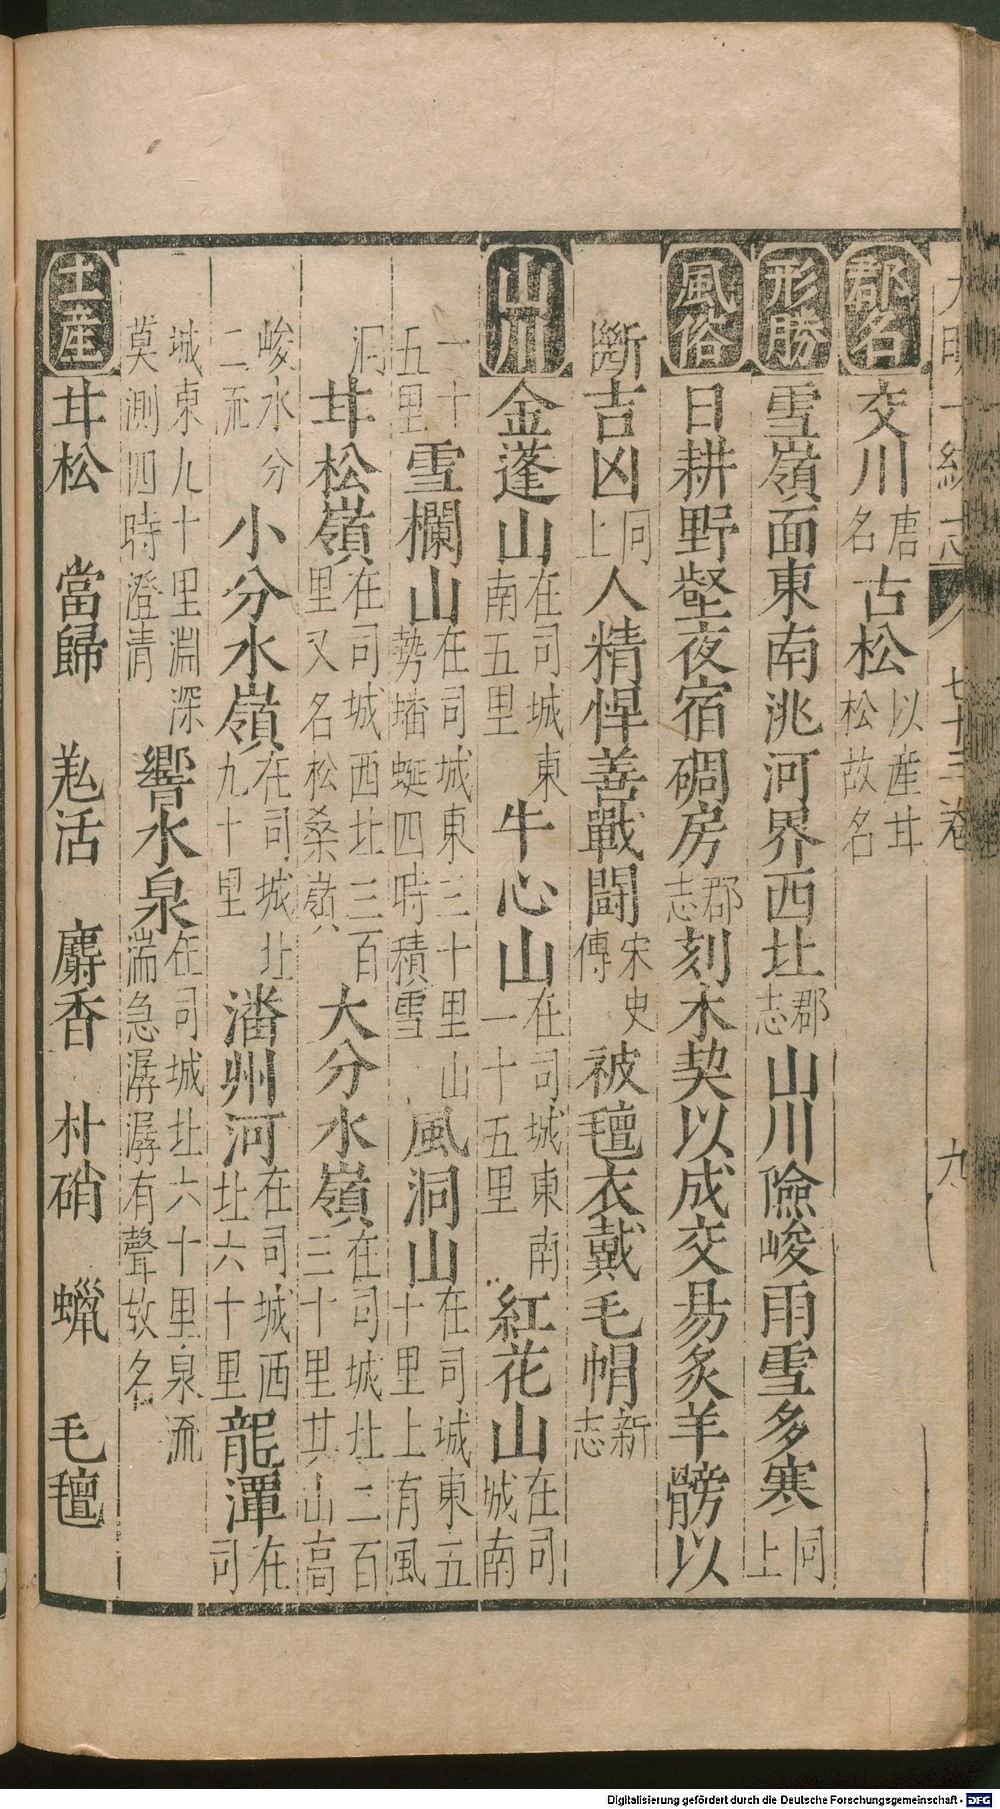 大明一統志 七十三卷 九
郡名 交川唐名 古松以產甘松故名
形勝 雪嶺面東南洮河界西北郡志山川險峻雨雪多寒同上
風俗 日耕野壑夜宿碉房郡志刻木契以成交易炙羊髈以
斷吉凶同上人精悍善戰鬪宋史傳被氊衣戴毛帽新志
山川 金蓬山在司城東南五里 牛心山在司城東南一十五里 紅花山在司城南
一十五里 雪欄山在司城東三十里山勢蟠蜒四時積雪 風洞山在司城東五十里上有風
洞 甘松嶺在司城西北三百里又名松桑嶺 大分水嶺在司城北二百三十里其山高
峻水分二流 小分水嶺在司城北九十里 潘州河在司城西北六十里 龍潭在司
城東九十里淵深莫測四時澄清 響水泉在司城北六十里泉流湍急潺潺有聲故名
土產 甘松 當歸 羌活 麝香 朴硝 蠟 毛氊
Digitalisierung gefördert durch die Deutsche Forschungsgemeinschaft - DFG